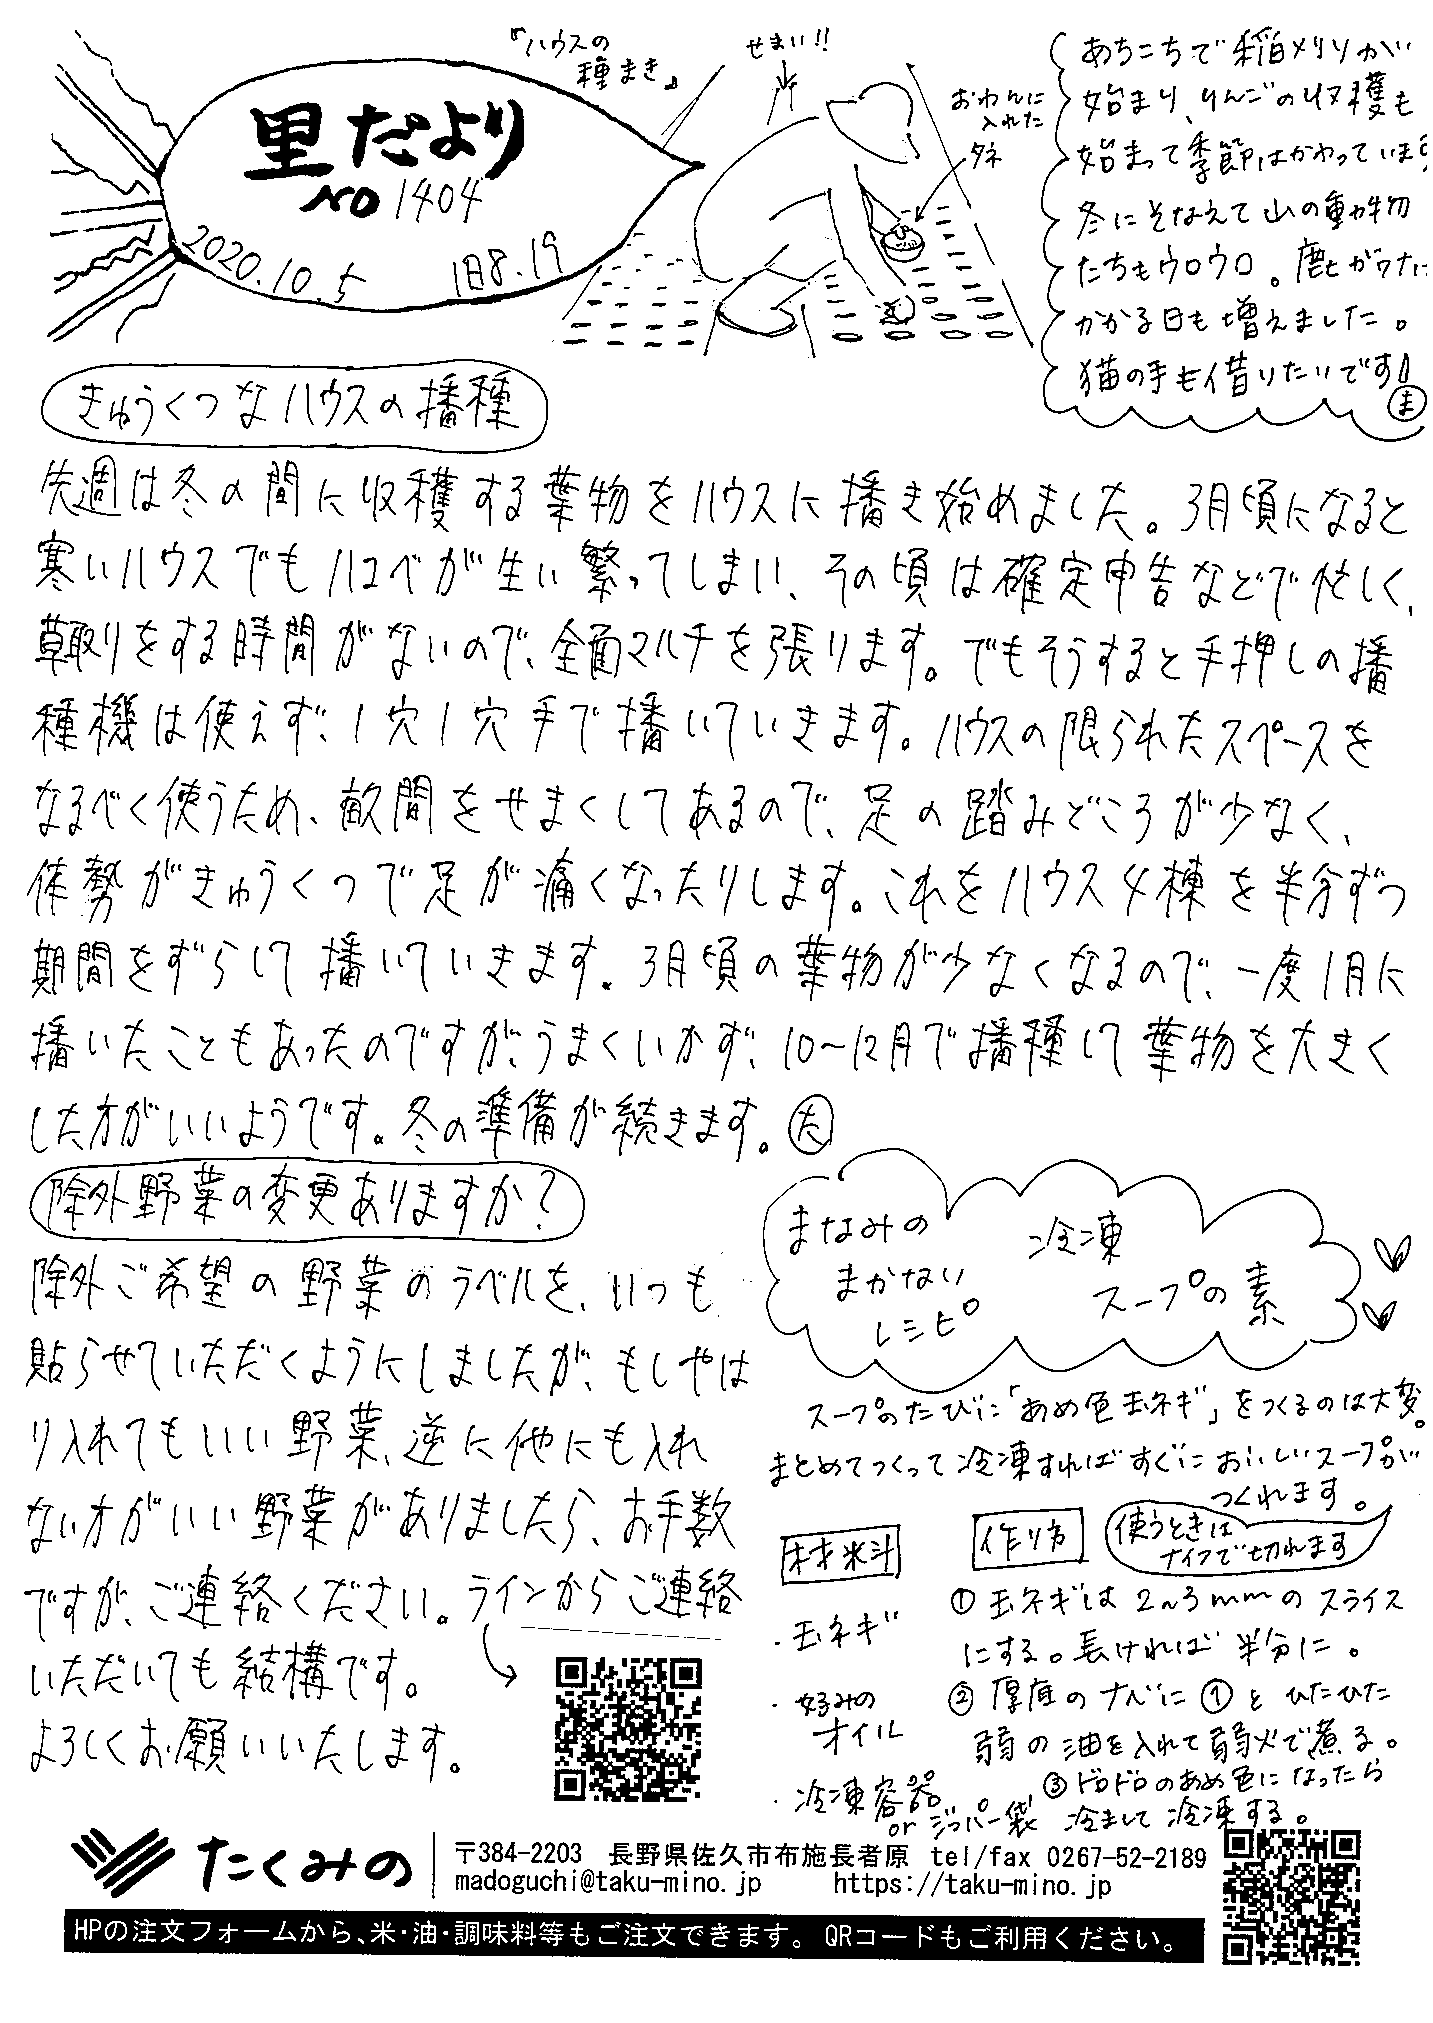 里だより
NO 1404
2020.10.5 旧8.19
『ハウスの
種まき』
せまい!!
おわんに
入れた
タネ
あちこちで稲刈りが
始まり、りんごの収穫も
始まって季節はかわっています
冬にそなえて山の動物
たちもウロウロ。鹿がワナに
かかる日も増えました。
猫の手も借りたいです!
ま
きゅうくつなハウスの播種
先週は冬の間に収穫する葉物をハウスに播き始めました。3月頃になると
寒いハウスでもハコベが生い繁ってしまい、その頃は確定申告などで忙しく、
草取りをする時間がないので、全面マルチを張ります。でもそうすると手押しの播
種機は使えず、1穴1穴手で播いていきます。ハウスの限られたスペースを
なるべく使うため、畝間をせまくしてあるので、足の踏みどころが少なく、
体勢がきゅうくつで足が痛くなったりします。これをハウス4棟を半分ずつ
期間をずらして播いていきます。3月頃の葉物が少なくなるので、一度1月に
播いたこともあったのですが、うまくいかず、10〜12月で播種して葉物を大きく
した方がいいようです。冬の準備が続きます。た
除外野菜の変更ありますか?
除外ご希望の野菜のラベルを、いつも
貼らせていただくようにしましたが、もしやは
り入れてもいい野菜、逆に他にも入れ
ない方がいい野菜がありましたら、お手数
ですが、ご連絡ください。ラインからご連絡
いただいても結構です。
よろしくお願いいたします。
まなみの
まかない
レシピ
冷凍
スープの素
スープのたびに「あめ色玉ネギ」をつくるのは大変。
まとめてつくって冷凍すればすぐにおいしいスープが
つくれます。
材料
・玉ネギ
・好みの
オイル
・冷凍容器
or ジッパー袋
作り方
使うときは
ナイフで切れます
①玉ネギは2〜3mmのスライス
にする。長ければ半分に。
②厚底のナベに①とひたひた
弱の油を入れて弱火で煮る。
③ドロドロのあめ色になったら
冷まして冷凍する。
たくみの
〒384-2203 長野県佐久市布施長者原 tel/fax 0267-52-2189
madoguchi@taku-mino.jp https://taku-mino.jp
HPの注文フォームから、米・油・調味料等もご注文できます。QRコードもご利用ください。